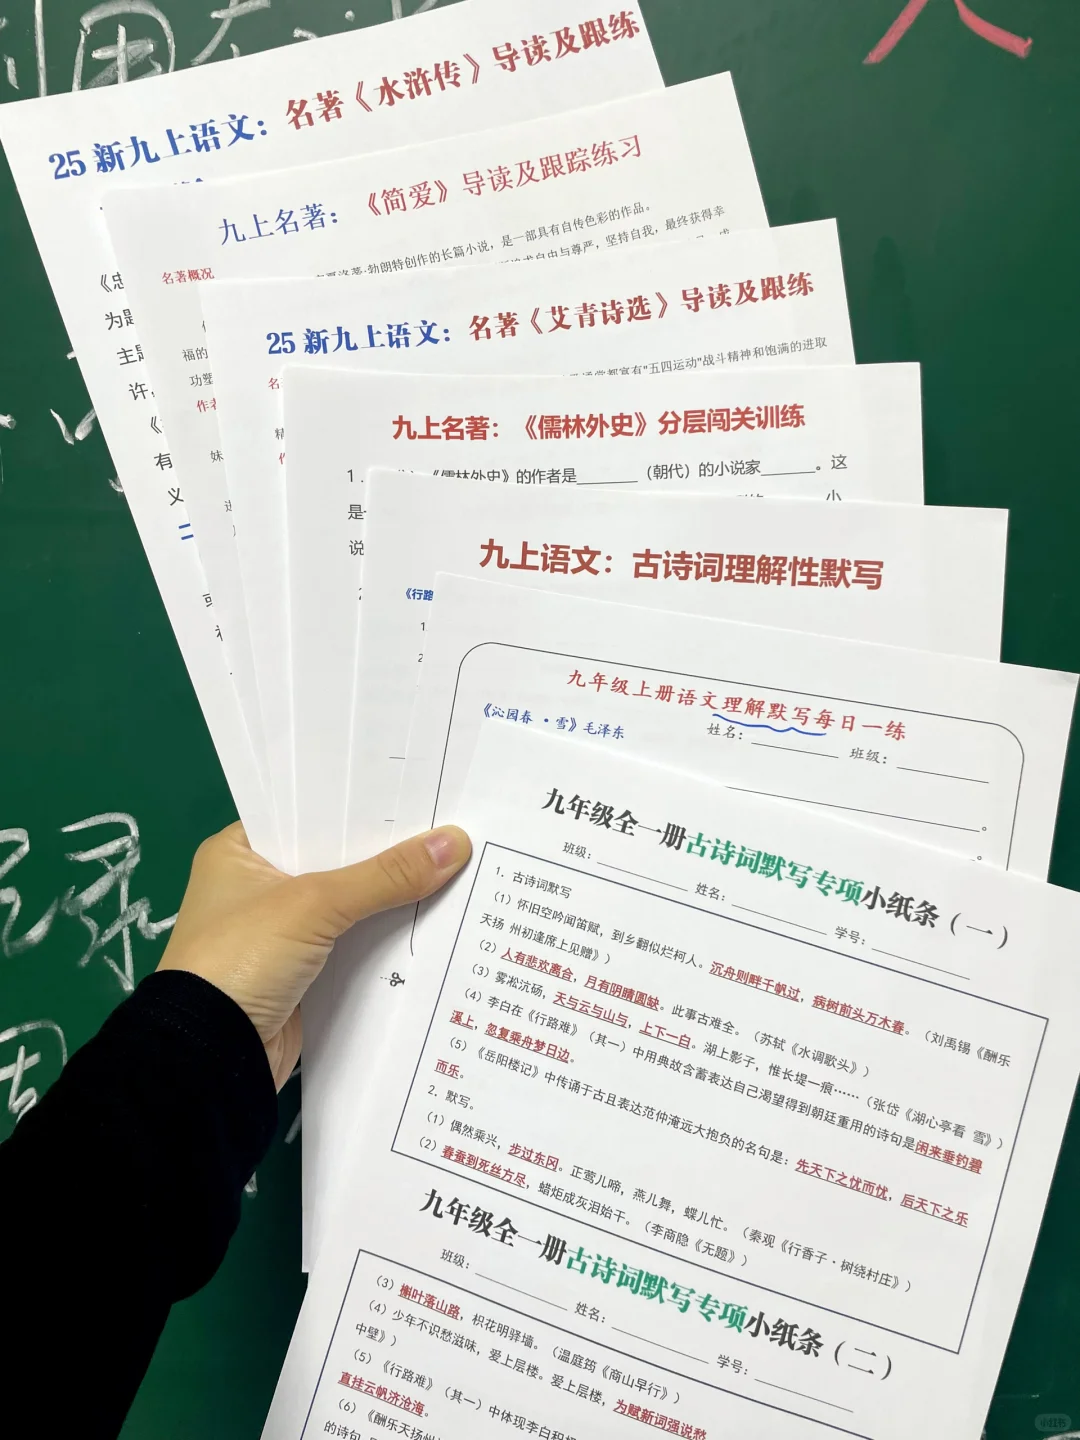 25 新九上语文：名著《水浒传》导读及跟练
九上名著：《简爱》导读及跟踪练习
名著概况
夏洛蒂·勃朗特创作的长篇小说，是一部具有自传色彩的作品。
追求自由与尊严，坚持自我，最终获得幸
福的
作者
25 新九上语文：名著《艾青诗选》导读及跟练
都富有"五四运动"战斗精神和饱满的进取
九上名著：《儒林外史》分层闯关训练
1. 《儒林外史》的作者是______（朝代）的小说家______。这
是
说
小
为
主题
许，
有
义
二
九上语文：古诗词理解性默写
《行路
1
2
九年级上册语文理解默写每日一练
《沁园春·雪》毛泽东
姓名：______ 班级：______
。
。
九年级全一册古诗词默写专项小纸条（一）
班级：______ 姓名：______ 学号：______
1. 古诗词默写
（1）怀旧空吟闻笛赋，到乡翻似烂柯人。沉舟侧畔千帆过，病树前头万木春。（刘禹锡《酬乐
天扬 州初逢席上见赠》）
（2）人有悲欢离合，月有阴晴圆缺。此事古难全。（苏轼《水调歌头》）
（3）雾凇沆砀，天与云与山与，上下一白。湖上影子，惟长堤一痕……（张岱《湖心亭看 雪》）
（4）李白在《行路难》（其一）中用典故含蓄表达自己渴望得到朝廷重用的诗句是闲来垂钓碧
溪上，忽复乘舟梦日边。
（5）《岳阳楼记》中传诵于古且表达范仲淹远大抱负的名句是：先天下之忧而忧，后天下之乐
而乐。
2. 默写。
（1）偶然乘兴，步过东冈。正莺儿啼，燕儿舞，蝶儿忙。（秦观《行香子·树绕村庄》）
（2）春蚕到死丝方尽，蜡炬成灰泪始干。（李商隐《无题》）
九年级全一册古诗词默写专项小纸条（二）
班级：______ 姓名：______ 学号：______
（3）槲叶落山路，枳花明驿墙。（温庭筠《商山早行》）
（4）少年不识愁滋味，爱上层楼。爱上层楼，为赋新词强说愁
中壁》）
（5）《行路难》（其一）中体现李白积
直挂云帆济沧海。
（6）《酬乐天扬州
的诗句
小红书